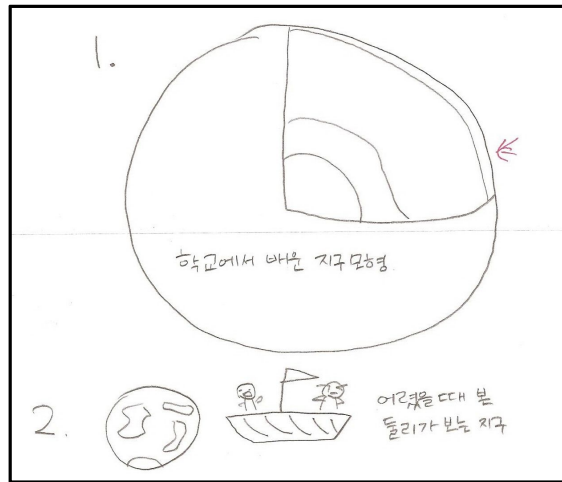 1.
학교에서 배운 지구모형
2.
어렸을 때 본
둘리가 보는 지구